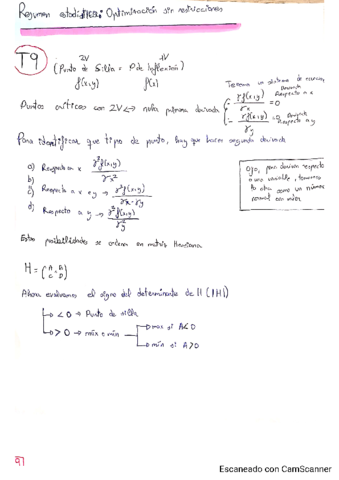 Resumen estadística: Optimización sin restricciones
T9
2V
1V
(Punto de Silla = P. de Inflexión)
f(x,y)
f(x)
Tenemos un sistema de
Puntos críticos con 2V ↔ nula primera derivada
γf(x,y) / γx = 0
Respecto a x
γf(x,y) / γy = 0
Respecto a y
Para identificar que tipo de punto, hay que hacer segunda derivada
a) Respecto a x γ²f(x,y) / γx²
b)
c) Respecto a x e y → γ²f(x,y) / γx · γy
d) Respecto a y → γ²f(x,y) / γy²
Ojo, para derivar respecto
a una variable, tomamos
la otra como un número
normal
Estas posibilidades se ordenan en matriz Hessiana
H = (A B
C D)
Ahora evaluamos el signo del determinante de H (|H|)
→ < 0 → Punto de silla
→ > 0 → máx o mín
→ max si A<0
→ mín si A>0
97
Escaneado con CamScanner